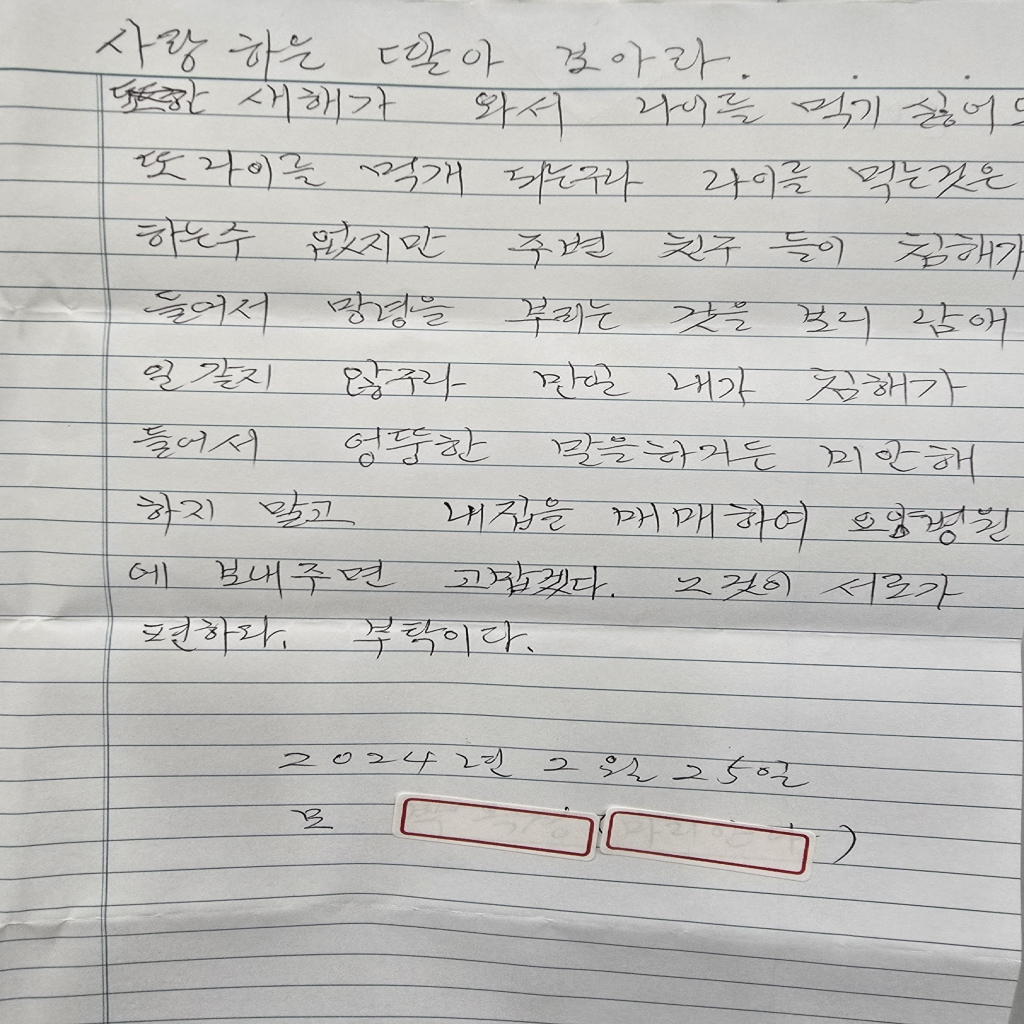 사랑 하는 딸아 보아라.
또한 새해가 와서 나이를 먹기 싫어도
또 나이를 먹개 되는구나 나이를 먹는것은
하는수 없지만 주변 친구 들이 침해가
들어서 망령을 부리는 것을 보니 남애
일 같지 않구나 만일 내가 침해가
들어서 엉뚱한 말을하거든 미안해
하지 말고 내집을 매매하여 요양병원
에 보내주면 고맙겠다. 그것이 서로가
편하다. 부탁이다.
2024년 2월 25일
모 ( )